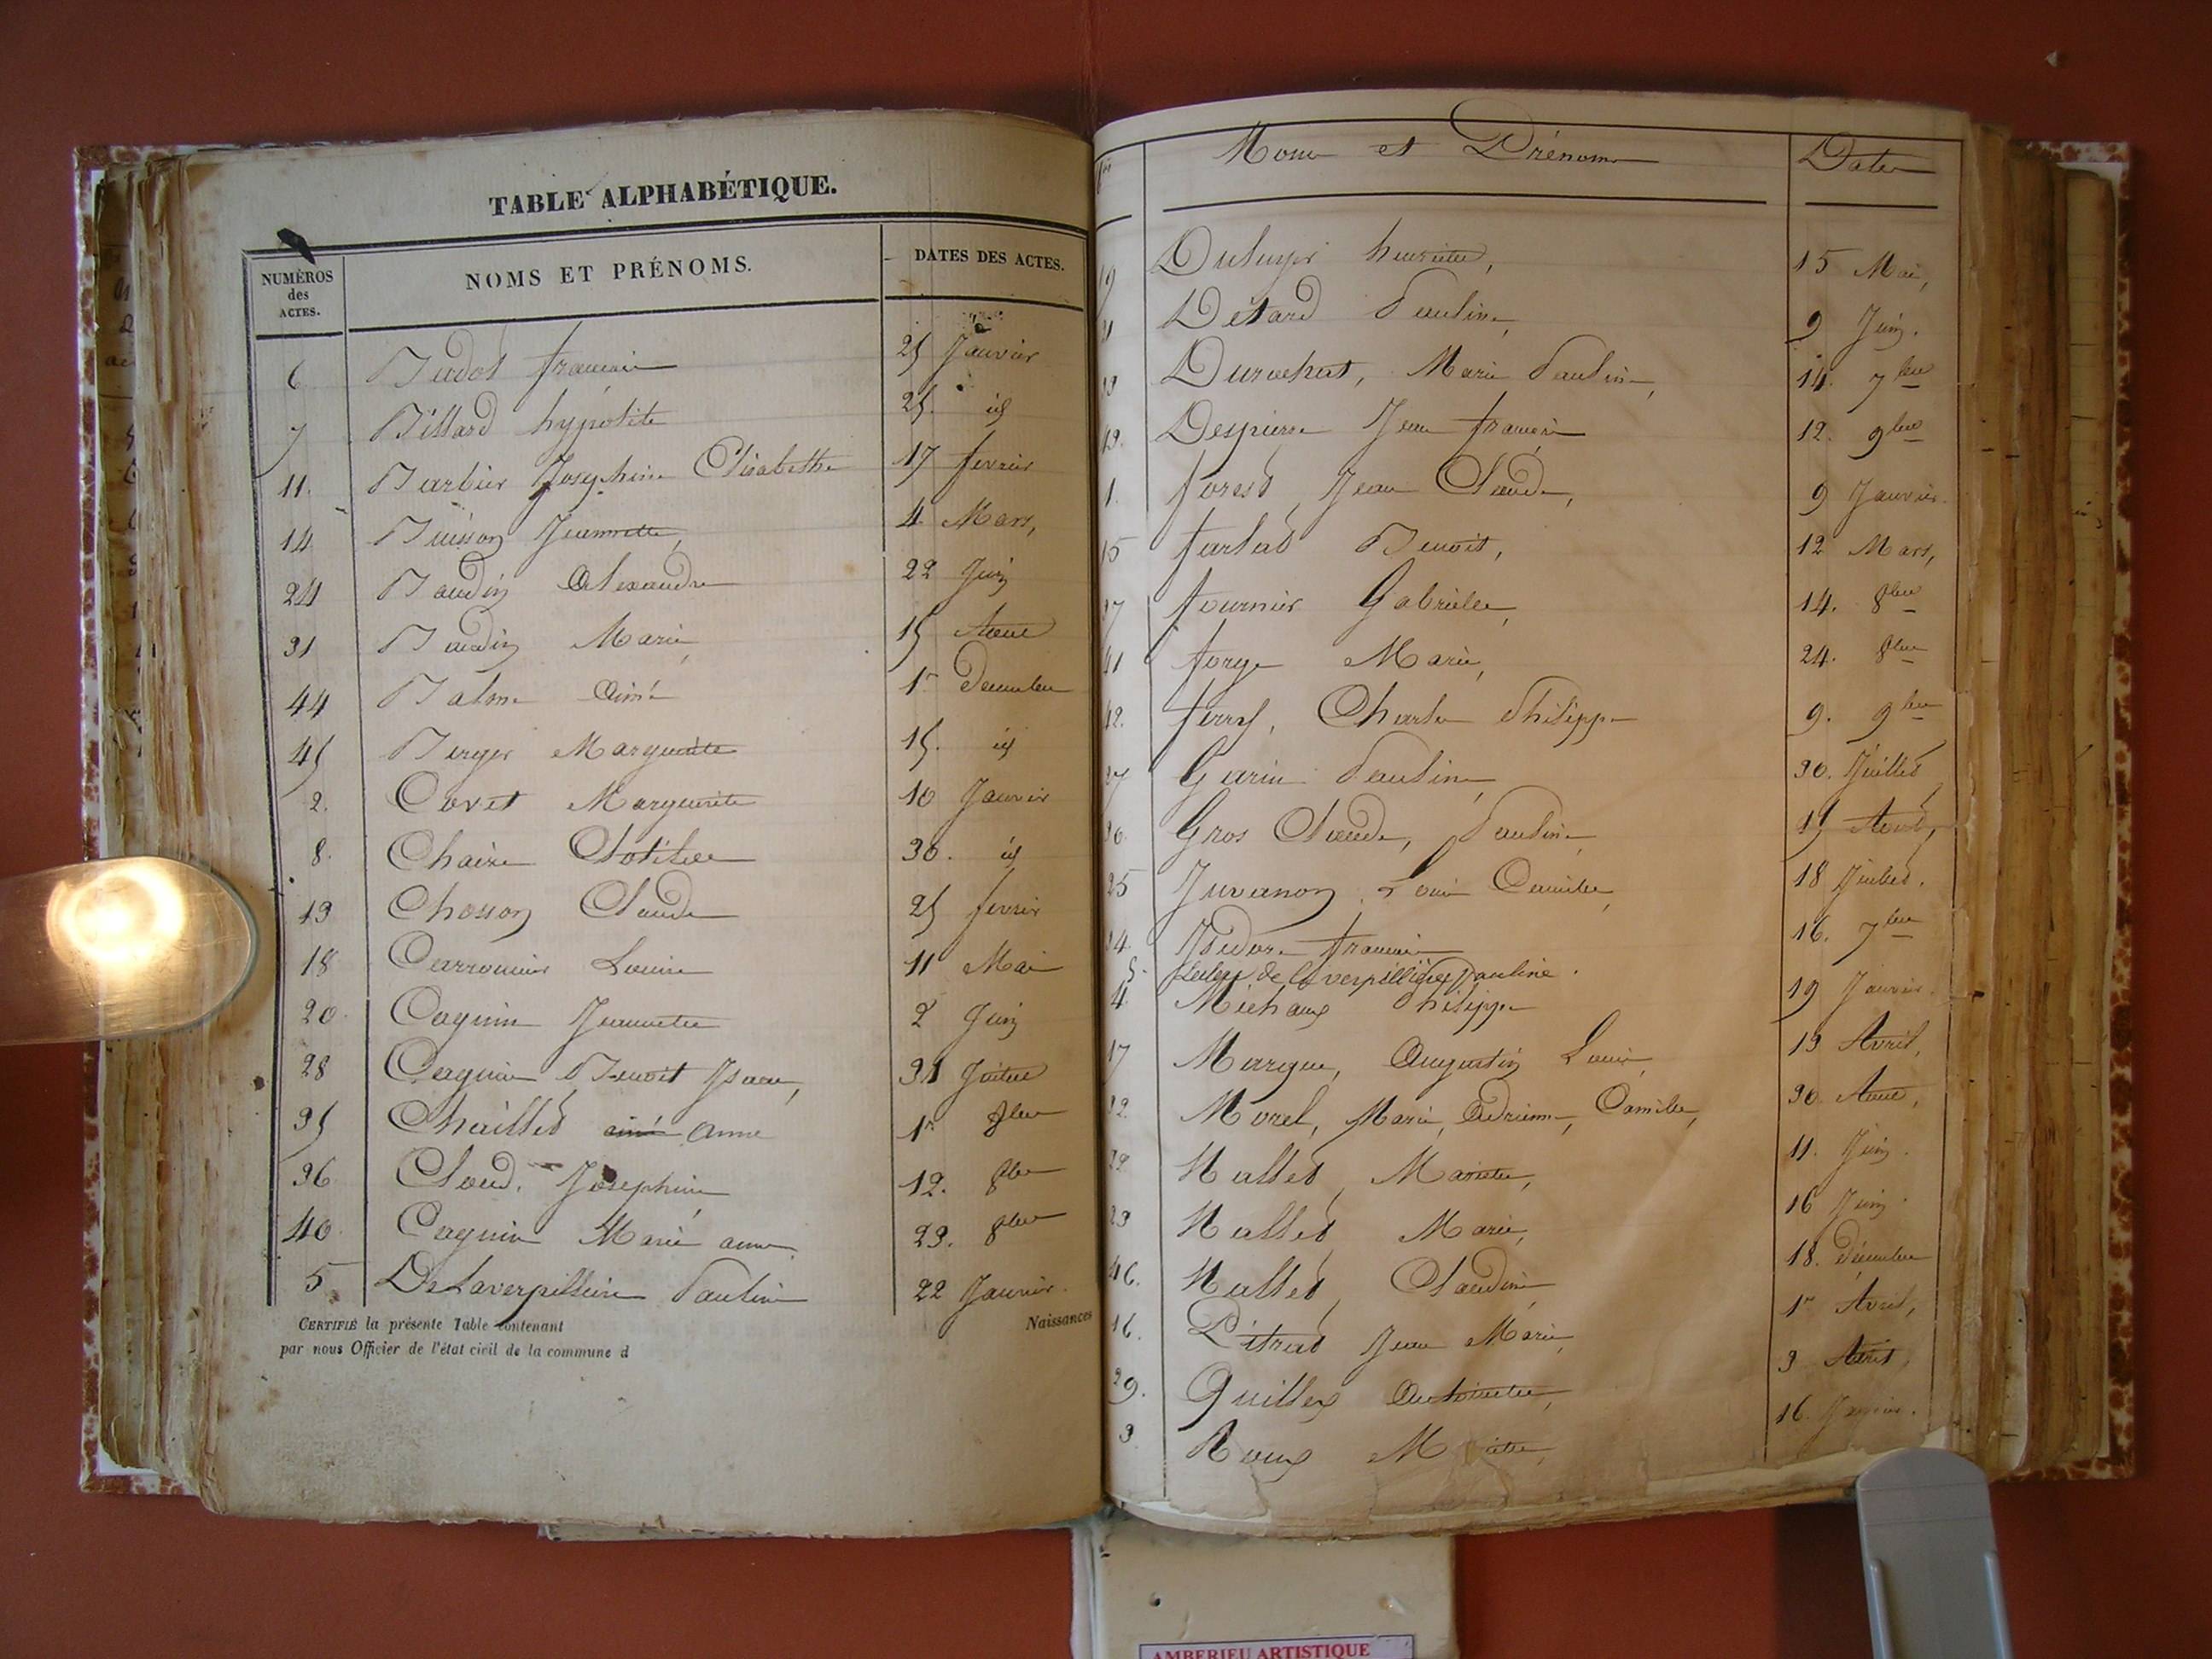 TABLE ALPHABÉTIQUE.
NUMÉROS des ACTES.
NOMS ET PRÉNOMS.
DATES DES ACTES.
6 Budot françois 25 Janvier
7 Billard hypolite 25. id
11. Barbier Josephine Elisabethe 17 fevrier
14 Buisson Jeannette, 4 Mars,
24 Baudin Alexandre 22 Juin
31 Baudin Marie, 15 Aout
44 Balme Aimé 1er Decembre
45 Berger Marguerite 15. id
2. Covet Marguerite 10 Janvier
8. Chaire Clotilde 30. id
13 Chosson Claude 25 fevrier
18 Carronnier Louise 11 Mai
20. Caguin Jeannette 2 Juin
28 Caguin Benoit Isaac, 31 Juillet
35 Chaillet aimé Anne 1er 8bre
36 Claud. Josephine 12. 8bre
40. Caguin Marie anne, 23. 8bre
5 Delaverpilliere Pauline 22 Janvier.
CERTIFIÉ la présente Table contenant
Naissances
par nous Officier de l'état civil de la commune d
Nom et Prénoms Dates
19 henriette, 15 Mai,
21 Détard Pauline, 9 Juin.
33 Durochat, Marie Pauline, 14. 7bre
43. Despierre Jean françois 12. 9bre
1. forest Jean Claude, 9 Janvier.
15 farlat Benoit, 12 Mars,
37 fournier Gabrielle, 14. 8bre
41 forge Marie, 24. 8bre
42. ferry, Charles Philippe 9. 9bre
27 Garin Pauline, 30. Juillet
30. Gros Claude, Pauline, 15 Aout,
25 Juvanon Louis Camille, 18 Juillet.
34. Isidore françois 16. 7bre
5. de la verpillière Pauline.
4. Michaux Philippe 19 Janvier.
17 Margue, Augustin Louis, 13 Avril,
32. Morel, Marie, Adrienne, Camille, 30 Aout,
22 Nallet Mariette, 11. Juin.
23 Nallet Marie, 16 Juin.
46. Nallet Claudine, 18. décembre
16. Pitrat Jean Marie, 1er Avril,
29. Quilleux Antoinette, 3 Aout,
3 Roux M 16. Janvier.
AMBERIEU ARTISTIQUE